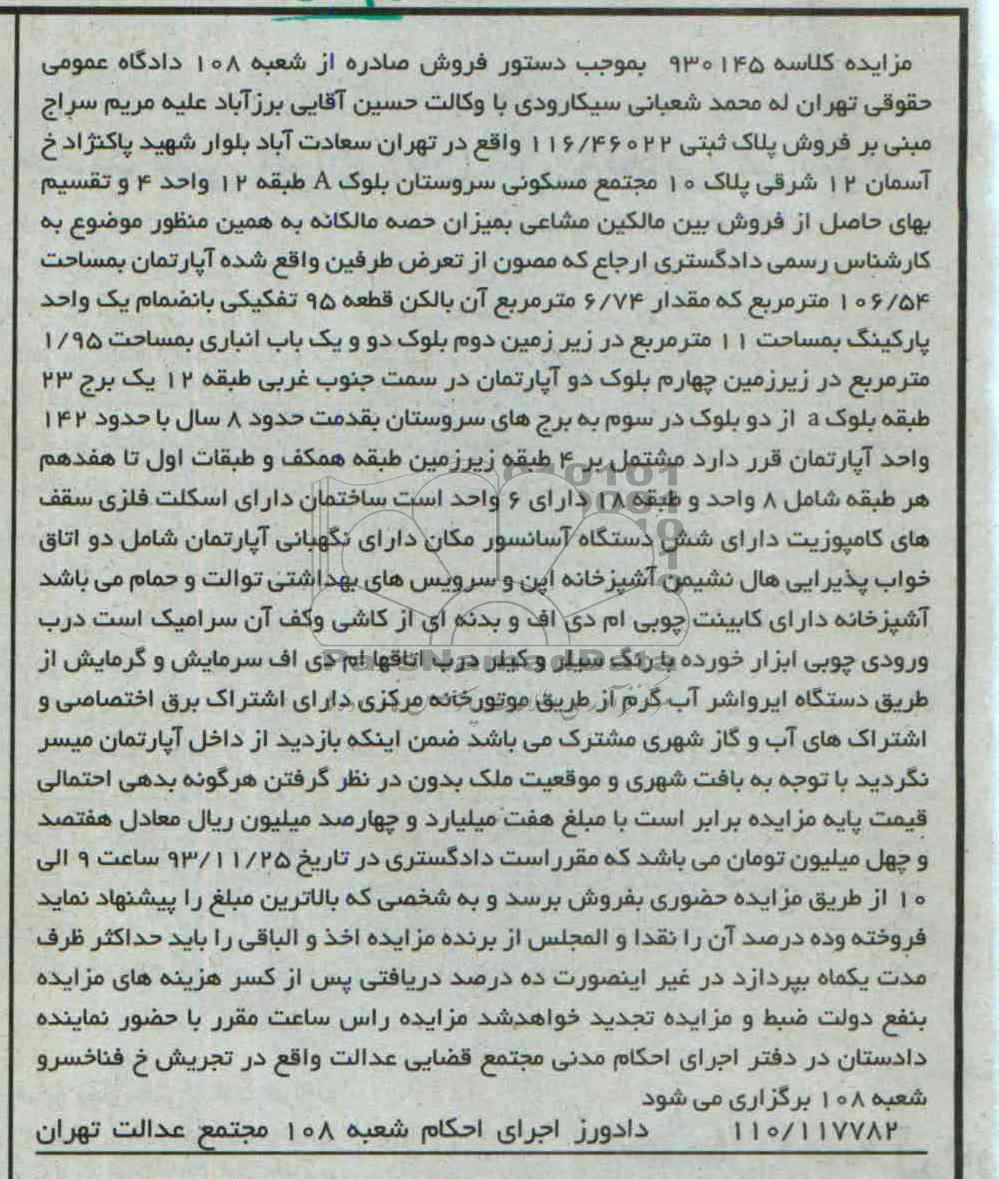 مزایده کلاسه ۹۳۰۱۴۵ بموجب دستور فروش صادره از شعبه ۱۰۸ دادگاه عمومی
حقوقی تهران له محمد شعبانی سیکارودی با وکالت حسین آقایی برزآباد علیه مریم سراج
مبنی بر فروش پلاک ثبتی ۱۱۶/۴۶۰۲۲ واقع در تهران سعادت آباد بلوار شهید پاکنژاد خ
آسمان ۱۲ شرقی پلاک ۱۰ مجتمع مسکونی سروستان بلوک A طبقه ۱۲ واحد ۴ و تقسیم
بهای حاصل از فروش بین مالکین مشاعی بمیزان حصه مالکانه به همین منظور موضوع به
کارشناس رسمی دادگستری ارجاع که مصون از تعرض طرفین واقع شده آپارتمان بمساحت
۱۰۶/۵۴ مترمربع که مقدار ۶/۷۴ مترمربع آن بالکن قطعه ۹۵ تفکیکی بانضمام یک واحد
پارکینگ بمساحت ۱۱ مترمربع در زیر زمین دوم بلوک دو و یک باب انباری بمساحت ۱/۹۵
مترمربع در زیرزمین چهارم بلوک دو آپارتمان در سمت جنوب غربی طبقه ۱۲ یک برج ۲۳
طبقه بلوک a از دو بلوک در سوم به برج های سروستان بقدمت حدود ۸ سال با حدود ۱۴۲
واحد آپارتمان قرر دارد مشتمل بر ۴ طبقه زیرزمین طبقه همکف و طبقات اول تا هفدهم
هر طبقه شامل ۸ واحد و طبقه ۱۸ دارای ۶ واحد است ساختمان دارای اسکلت فلزی سقف
های کامپوزیت دارای شش دستگاه آسانسور مکان دارای نگهبانی آپارتمان شامل دو اتاق
خواب پذیرایی هال نشیمن آشپزخانه اپن و سرویس های بهداشتی توالت و حمام می باشد
آشپزخانه دارای کابینت چوبی ام دی اف و بدنه ای از کاشی وکف آن سرامیک است درب
ورودی چوبی ابزار خورده با رنگ سیلر و کیلر درب اتاقها ام دی اف سرمایش و گرمایش از
طریق دستگاه ایرواشر آب گرم از طریق موتورخانه مرکزی دارای اشتراک برق اختصاصی و
اشتراک های آب و گاز شهری مشترک می باشد ضمن اینکه بازدید از داخل آپارتمان میسر
نگردید با توجه به بافت شهری و موقعیت ملک بدون در نظر گرفتن هرگونه بدهی احتمالی
قیمت پایه مزایده برابر است با مبلغ هفت میلیارد و چهارصد میلیون ریال معادل هفتصد
و چهل میلیون تومان می باشد که مقرراست دادگستری در تاریخ ۹۳/۱۱/۲۵ ساعت ۹ الی
۱۰ از طریق مزایده حضوری بفروش برسد و به شخصی که بالاترین مبلغ را پیشنهاد نماید
فروخته وده درصد آن را نقدا و المجلس از برنده مزایده اخذ و الباقی را باید حداکثر ظرف
مدت یکماه بپردازد در غیر اینصورت ده درصد دریافتی پس از کسر هزینه های مزایده
بنفع دولت ضبط و مزایده تجدید خواهدشد مزایده راس ساعت مقرر با حضور نماینده
دادستان در دفتر اجرای احکام مدنی مجتمع قضایی عدالت واقع در تجریش خ فناخسرو
شعبه ۱۰۸ برگزاری می شود
۱۱۰/۱۱۷۷۸۲ دادورز اجرای احکام شعبه ۱۰۸ مجتمع عدالت تهران